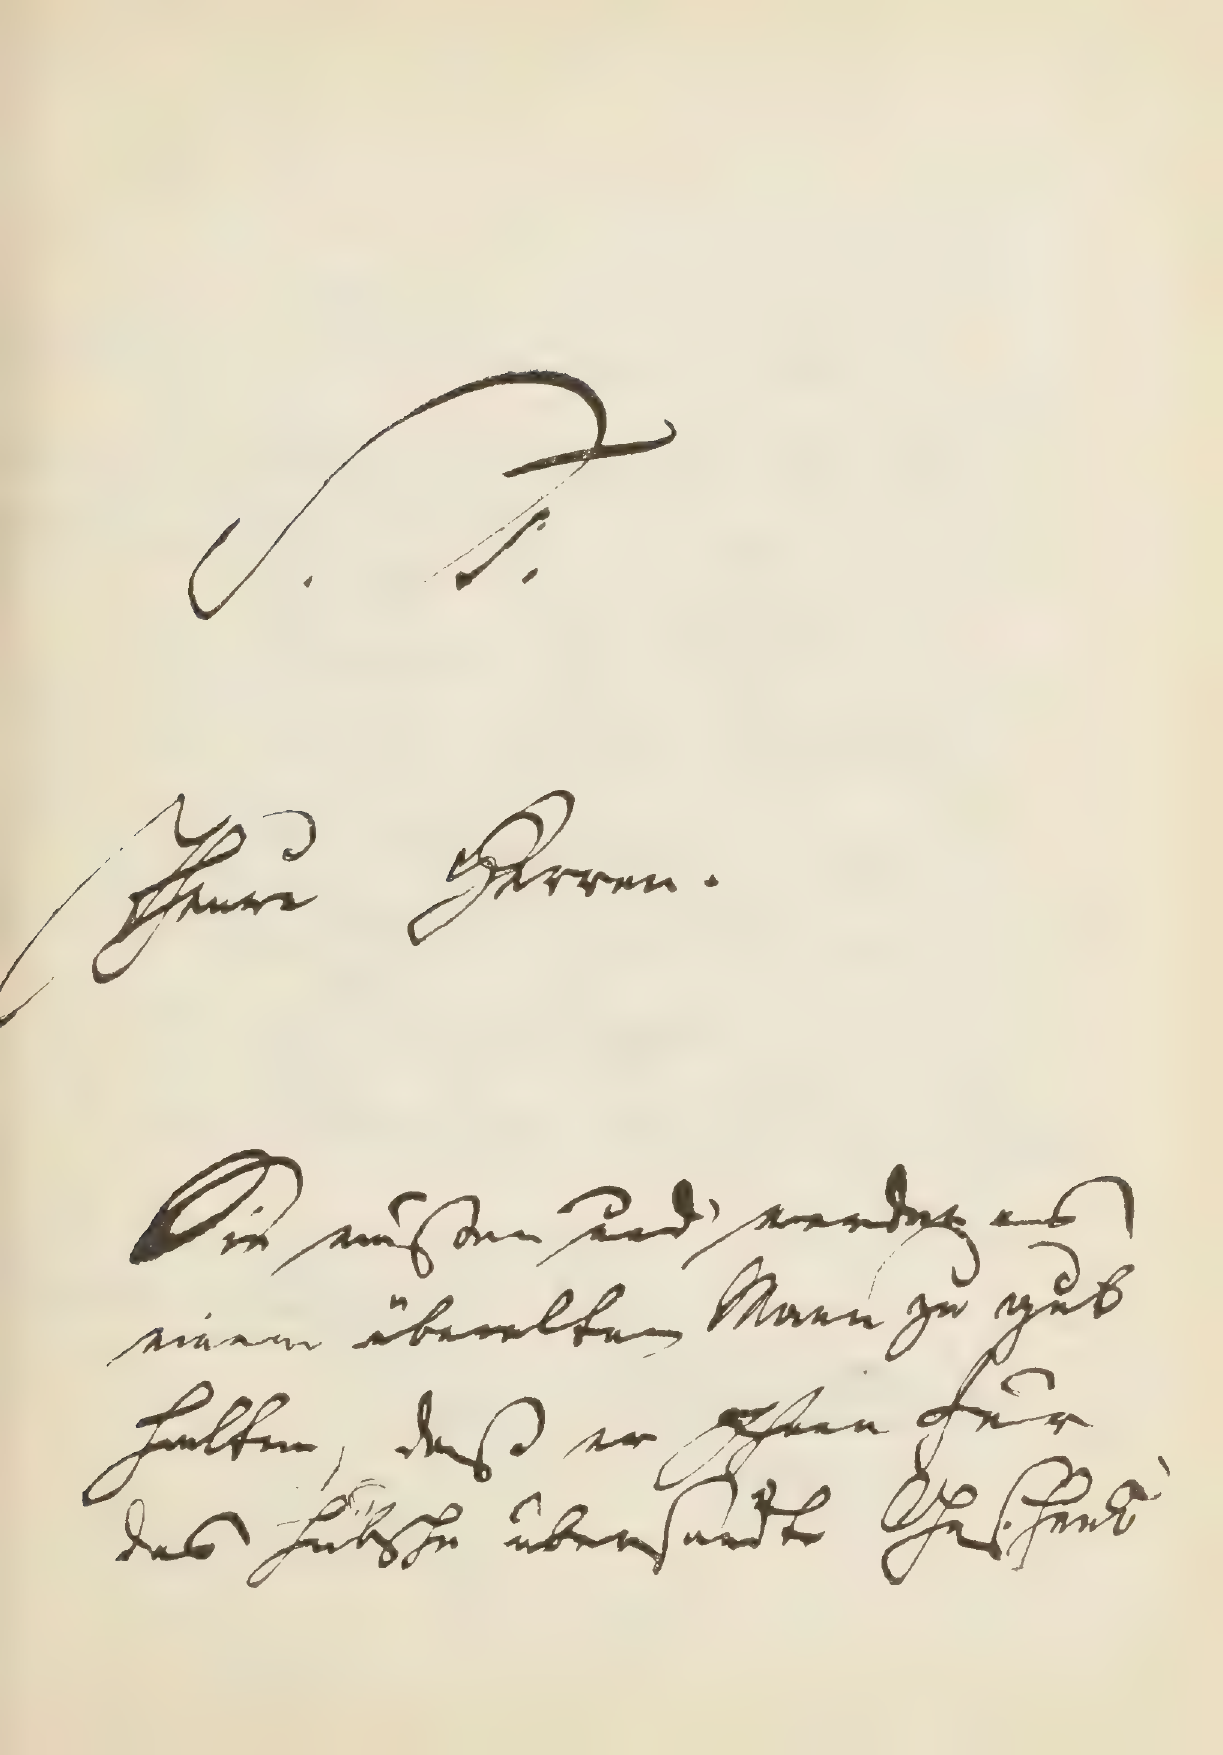 P. P.
Theure Herren.
Sie müßen und werden es
einem überalten Mann zu gut
halten, daß er Ihnen für
das hübsche übersandte Geschenk